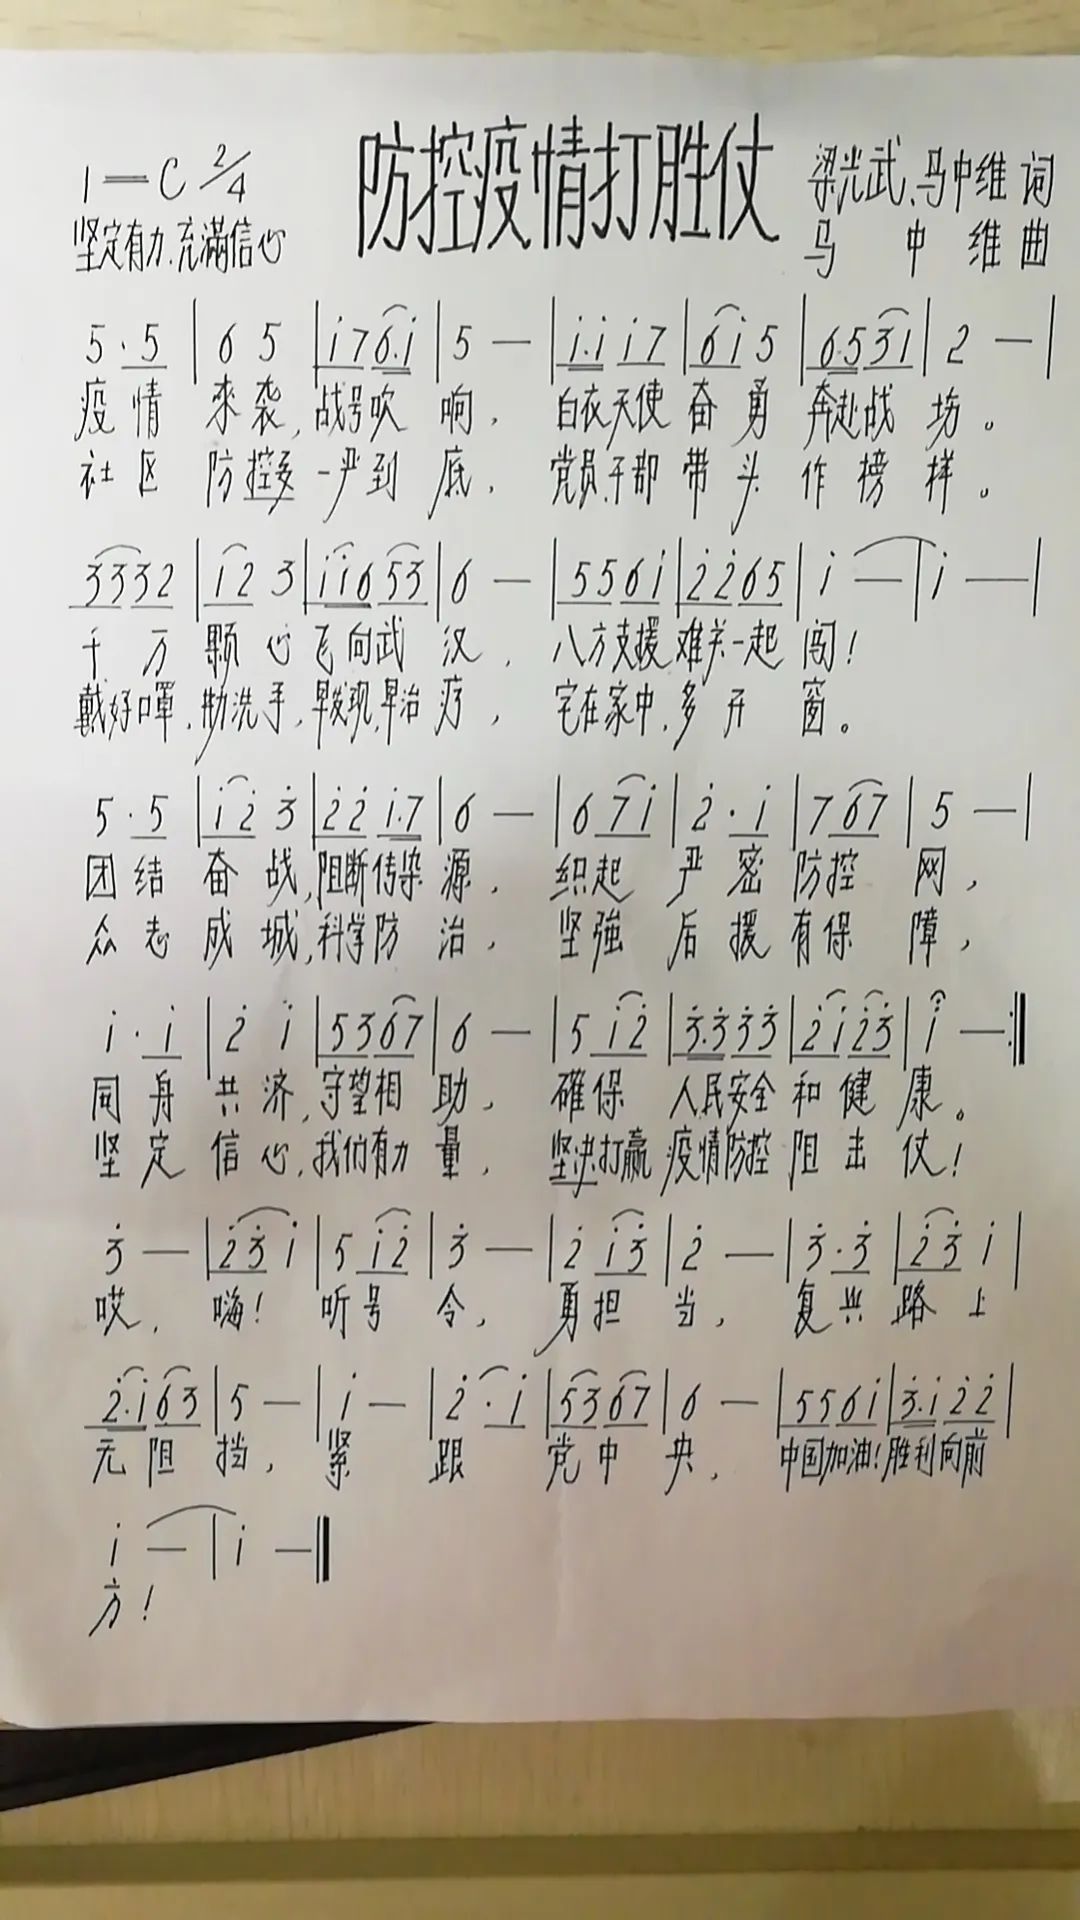 防控疫情打胜仗
1=C 2/4
梁光武、马中维 词
坚定有力、充满信心
马中维 曲
5·5 | 6 5 | i 7 6·i | 5 — | i·i i 7 | 6 i 5 | 6·5 3 1 | 2 — |
疫情来袭,战号吹响,白衣天使奋勇奔赴战场。
社区防控多一严到底,党员、干部带头作榜样。
3 3 3 2 | 1 2 3 | i i 6 5 3 | 6 — | 5 5 6 i | 2̇ 2̇ 6 5 | i — | i — |
千万颗心飞向武汉,八方支援难关一起闯!
戴好口罩,勤洗手,早发现,早治疗,宅在家中,多开窗。
5·5 | i 2̇ 3̇ | 2̇ 2̇ i·7 | 6 — | 6 7 i | 2̇·i | 7 6 7 | 5 — |
团结奋战,阻断传染源,织起严密防控网,
众志成城,科学防治,坚强后援有保障,
i·i | 2̇ i | 5 3 6 7 | 6 — | 5 i 2̇ | 3̇·3̇ 3̇ 3̇ | 2̇ i 2̇ 3̇ | i — :‖
同舟共济,守望相助,確保人民安全和健康。
坚定信心,我们有力量,坚决打赢疫情防控阻击仗!
3̇ — | 2̇ 3̇ i | 5 i 2̇ | 3̇ — | 2̇ i 3̇ | 2̇ — | 3̇·3̇ | 2̇ 3̇ i |
哎,嗨!听号令,勇担当,复兴路上
2̇·i 6 3 | 5 — | i — | 2̇·i | 5 3 6 7 | 6 — | 5 5 6 i | 3̇·i 2̇ 2̇ |
无阻挡,紧跟党中央,中国加油!胜利向前
i — | i — ‖
方!